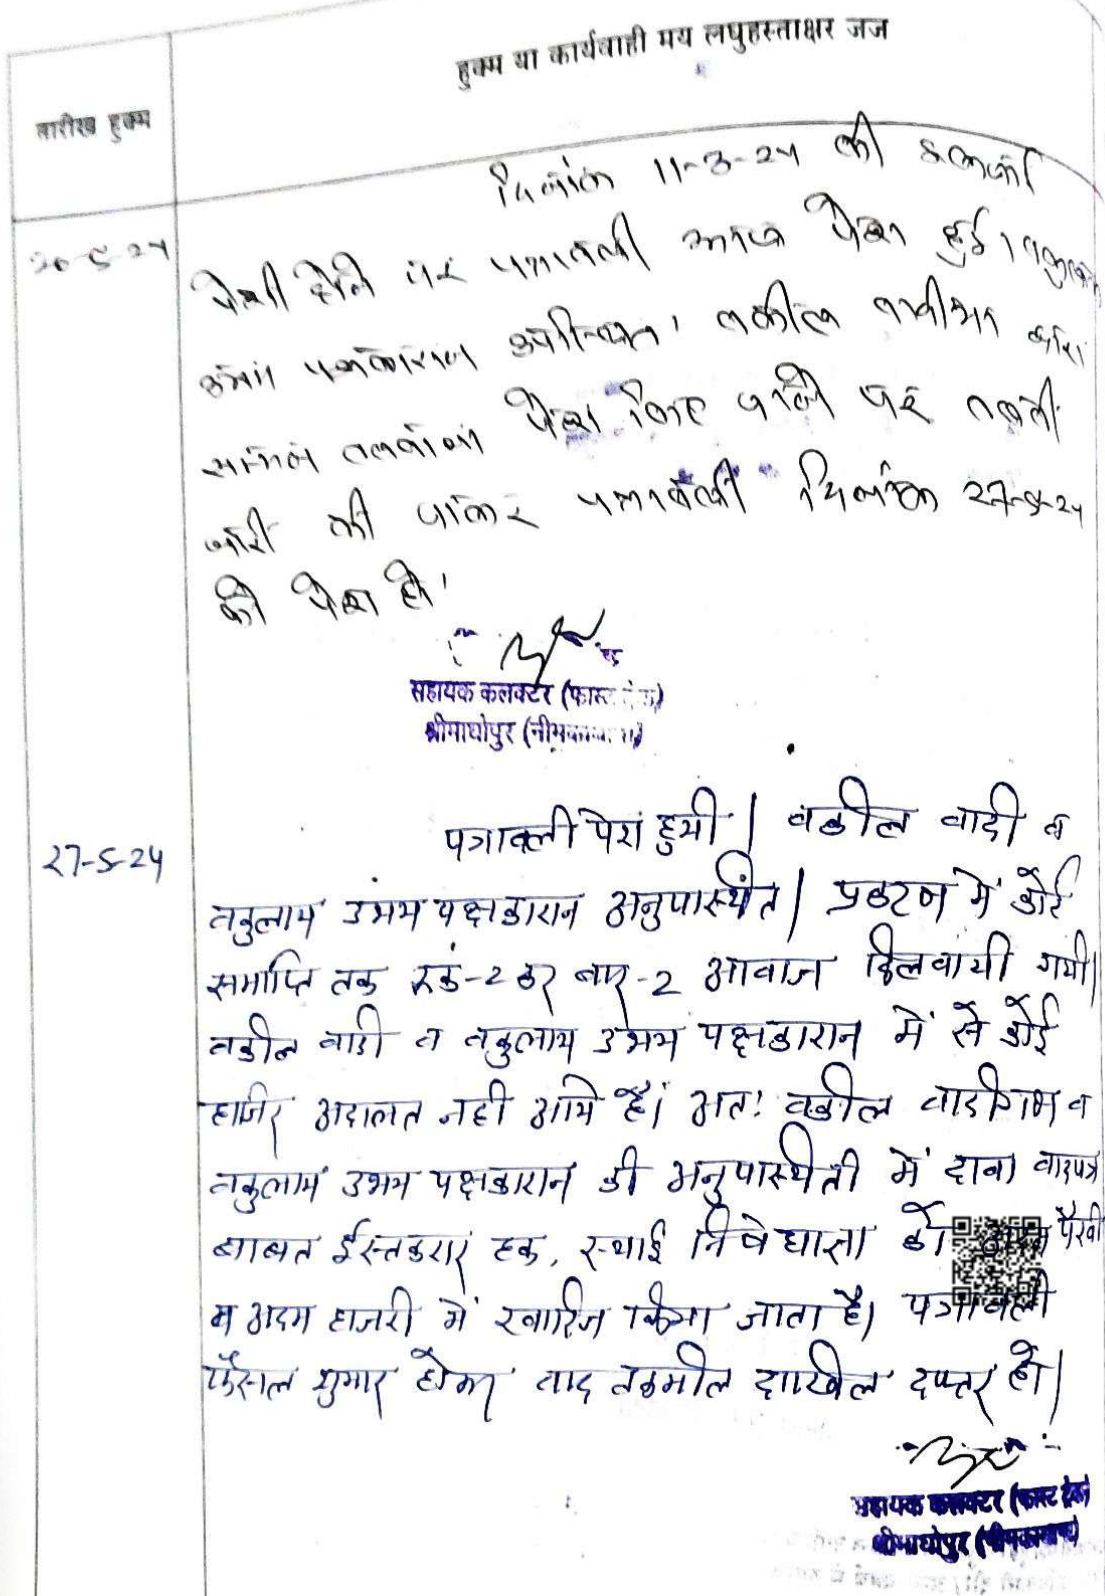 हुक्म या कार्यवाही मय लघुहस्ताक्षर जज
तारीख हुक्म
दिनांक 11-3-24 की
20-5-24
पेशी होने पर पत्रावली आज पेश हुई। वकुलाय
उभय पक्षकारान उपस्थित। वकील वादीगण द्वारा
सम्मन तलवाना पेश किए जाने पर तलबी
जारी की जाकर पत्रावली दिनांक 27-5-24
को पेश हो।
सहायक कलक्टर (फास्ट ट्रेक)
श्रीमाधोपुर (नीमकाथाना)
पत्रावली पेश हुयी। वकील वादी व
27-5-24
वकुलाय उभय पक्षकारान अनुपास्थित। प्रकरण में कोर्ट
समाप्ति तक रूक-2 कर बार-2 आवाज दिलवायी गयी।
वकील वादी व वकुलाय उभय पक्षकारान में से कोई
हाजिर अदालत नही आये है। अतः वकील वादीगण व
वकुलाय उभय पक्षकारान की अनुपास्थिती में दावा वादपत्र
बाबत ईस्तकरार हक, स्थाई निषेधाज्ञा को अदम पैरवी
व अदम हाजरी में खारिज किया जाता है। पत्रावली
फैसल शुमार होकर बाद तकमील दाखिल दफ्तर हो।
सहायक कलक्टर (फास्ट ट्रेक)
श्रीमाधोपुर (नीमकाथाना)